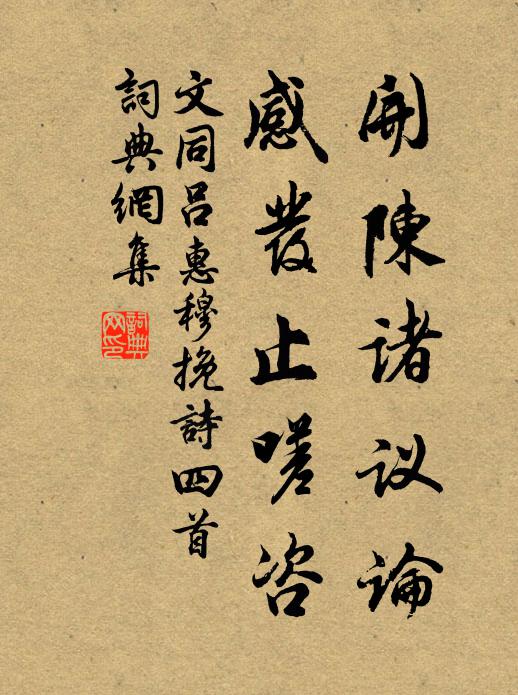 開陳諸议論
感發止嗟咨
文同吕惠穆挽詩四首
詞典網集
詞典网印